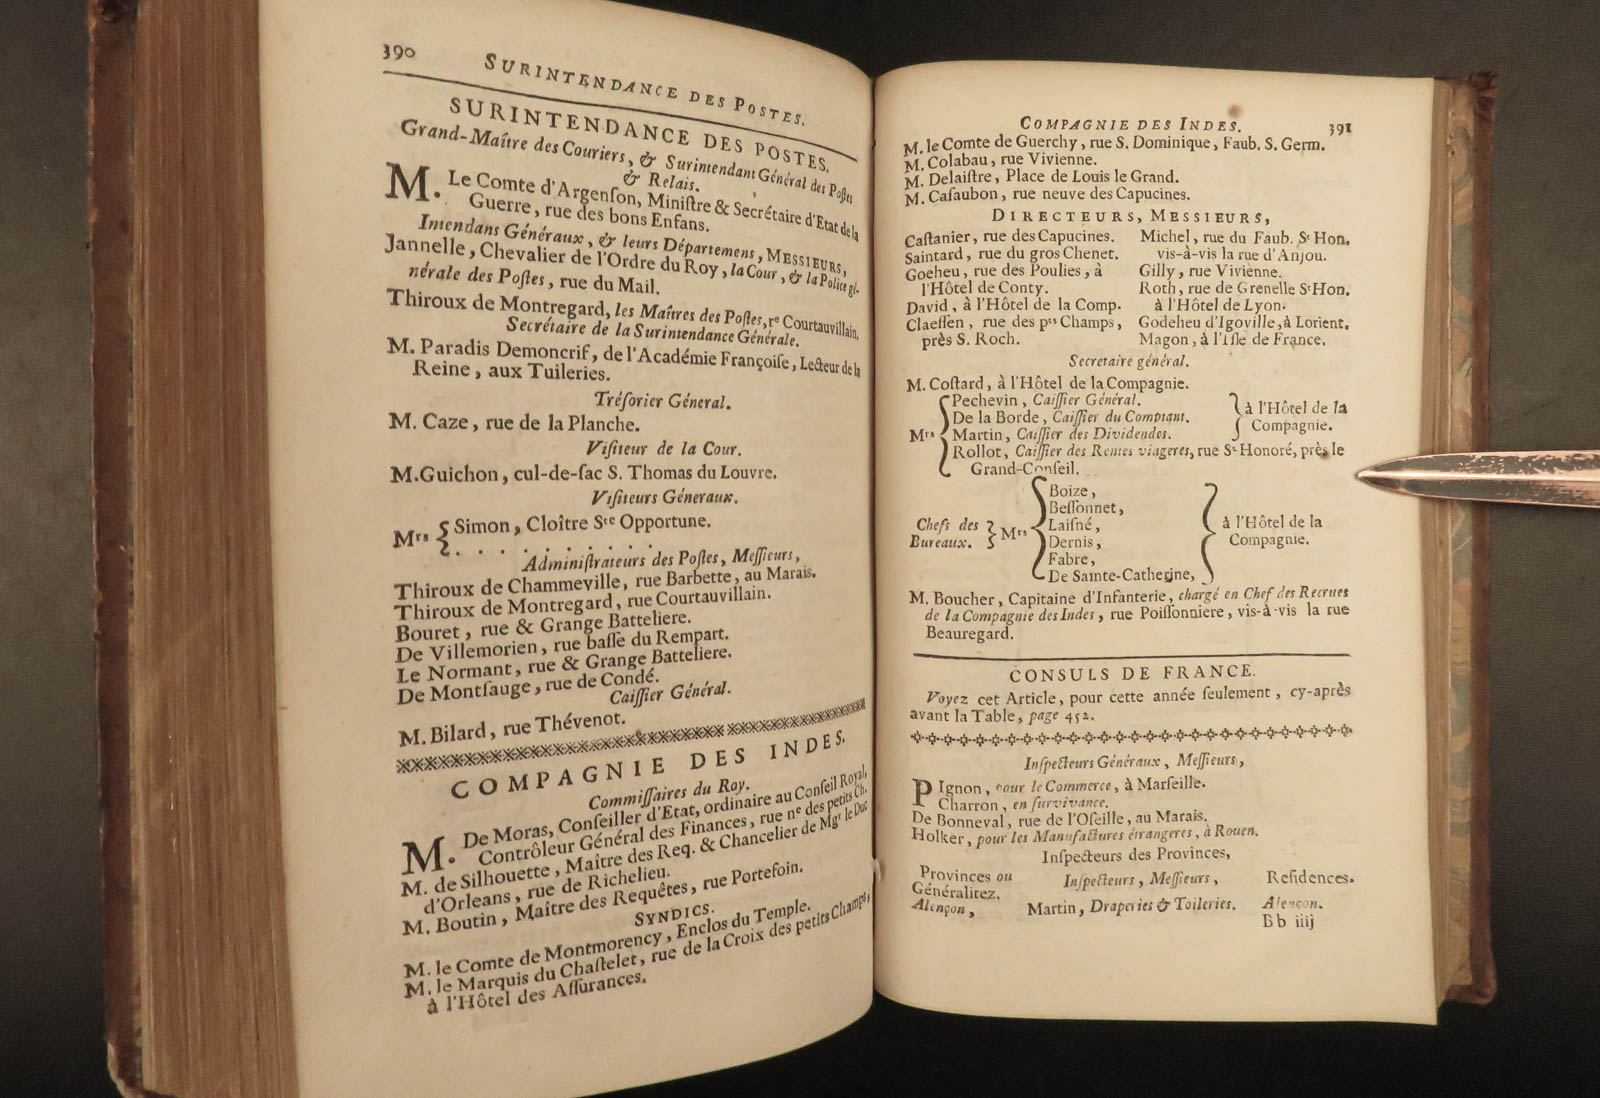 390 SURINTENDANCE DES POSTES.
SURINTENDANCE DES POSTES.
Grand-Maître des Couriers, & Surintendant Général des Postes
& Relais.
M. Le Comte d'Argenſon, Miniſtre & Secrétaire d'Etat de la
Guerre, rue des bons Enfans.
Intendans Généraux, & leurs Départemens, MESSIEURS,
Jannelle, Chevalier de l'Ordre du Roy, la Cour, & la Police gé-
nérale des Poſtes, rue du Mail.
Thiroux de Montregard, les Maîtres des Poſtes, re Courtauvillain.
Secrétaire de la Surintendance Générale.
M. Paradis Demoncrif, de l'Académie Françoiſe, Lecteur de la
Reine, aux Tuileries.
Tréſorier Géneral.
M. Caze, rue de la Planche.
Viſiteur de la Cour.
M. Guichon, cul-de-ſac S. Thomas du Louvre.
Viſiteurs Géneraux.
Mrs { Simon, Cloître Ste Opportune.
. . . . . . . .
Adminiſtrateurs des Poſtes, Meſſieurs,
Thiroux de Chammeville, rue Barbette, au Marais.
Thiroux de Montregard, rue Courtauvillain.
Bouret, rue & Grange Batteliere.
De Villemorien, rue baſſe du Rempart.
Le Normant, rue & Grange Batteliere.
De Montſauge, rue de Condé.
Caiſſier Général.
M. Bilard, rue Thévenot.
COMPAGNIE DES INDES.
Commiſſaires du Roy.
M. De Moras, Conſeiller d'Etat, ordinaire au Conſeil Royal,
Contrôleur Général des Finances, rue ne des petits Ch.
M. de Silhouette, Maître des Req. & Chancelier de Mgr le Duc
d'Orleans, rue de Richelieu.
M. Boutin, Maître des Requêtes, rue Portefoin.
SYNDICS.
M. le Comte de Montmorency, Enclos du Temple.
M. le Marquis du Chaſtelet, rue de la Croix des petits Champs,
à l'Hôtel des Aſſurances.
COMPAGNIE DES INDES. 391
M. le Comte de Guerchy, rue S. Dominique, Faub. S. Germ.
M. Colabau, rue Vivienne.
M. Delaiſtre, Place de Louis le Grand.
M. Caſaubon, rue neuve des Capucines.
DIRECTEURS, MESSIEURS,
Caſtanier, rue des Capucines.
Saintard, rue du gros Chenet.
Goeheu, rue des Poulies, à
l'Hôtel de Conty.
David, à l'Hôtel de la Comp.
Claeſſen, rue des pss Champs,
près S. Roch.
Michel, rue du Faub. St Hon.
vis-à-vis la rue d'Anjou.
Gilly, rue Vivienne.
Roth, rue de Grenelle St Hon.
à l'Hôtel de Lyon.
Godeheu d'Igoville, à Lorient.
Magon, à l'Iſle de France.
Secretaire général.
M. Coſtard, à l'Hôtel de la Compagnie.
Mrs { Pechevin, Caiſſier Général.
De la Borde, Caiſſier du Comptant.
Martin, Caiſſier des Dividendes.
} à l'Hôtel de la
Compagnie.
Rollot, Caiſſier des Rentes viageres, rue St Honoré, près le
Grand-Conſeil.
Chefs des
Bureaux. } Mrs { Boize,
Beſſonnet,
Laiſné,
Dernis,
Fabre,
De Sainte-Catherine,
} à l'Hôtel de la
Compagnie.
M. Boucher, Capitaine d'Infanterie, chargé en Chef des Recrues
de la Compagnie des Indes, rue Poiſſonniere, vis-à-vis la rue
Beauregard.
CONSULS DE FRANCE.
Voyez cet Article, pour cette année ſeulement, cy-après
avant la Table, page 452.
Inſpecteurs Généraux, Meſſieurs,
PIgnon, pour le Commerce, à Marſeille.
Charron, en ſurvivance.
De Bonneval, rue de l'Oſeille, au Marais.
Holker, pour les Manufactures étrangeres, à Rouen.
Inſpecteurs des Provinces,
Provinces ou
Généralitez.
Inſpecteurs, Meſſieurs, Reſidences.
Alençon, Martin, Draperies & Toileries. Alencon.
Bb iiij